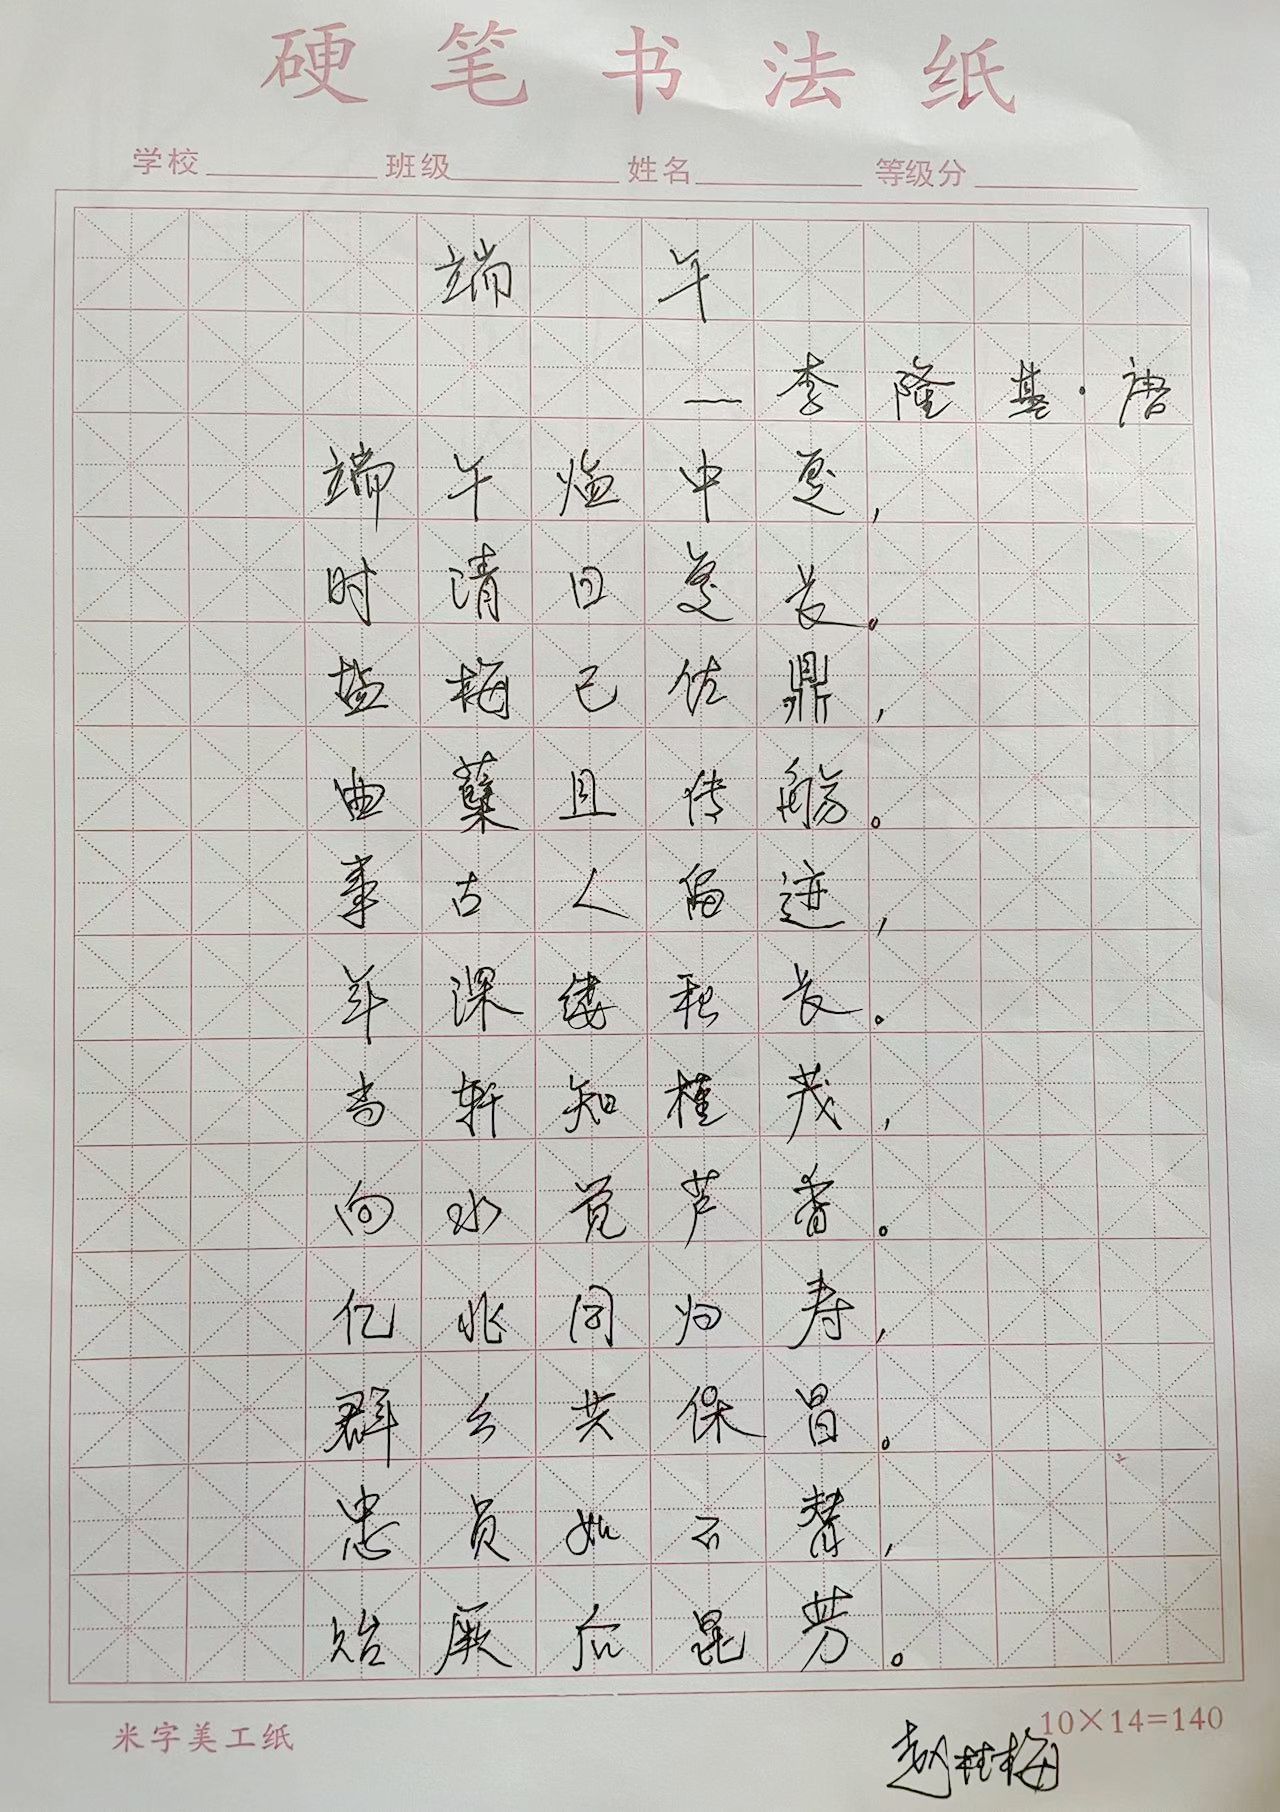 硬笔书法纸
学校 班级 姓名 等级分
端午
—李隆基·唐
端午临中夏，
时清日复长。
盐梅已佐鼎，
曲糵且传觞。
事古人留迹，
年深缕积长。
当轩知槿茂，
向水觉芦香。
亿兆同归寿，
群公共保昌。
忠贞如不替，
贻厥后昆芳。
米字美工纸 10×14=140
赵桂梅